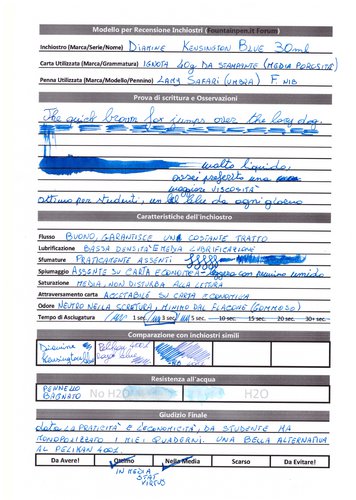 Modello per Recensione Inchiostri (Fountainpen.it Forum)
Inchiostro (Marca/Serie/Nome) DIAMINE KENSINGTON BLUE 30ml
Carta Utilizzata (Marca/Grammatura) IGNOTA 40g DA STAMPANTE (MEDIA POROSITÀ)
Penna Utilizzata (Marca/Modello/Pennino) LAMY SAFARI (UMBRA) F NIB
Prova di scrittura e Osservazioni
The quick brown fox jumps over the lazy dog.
molto liquido,
avrei preferito una
maggiore VISCOSITÀ
ottimo per studenti, un bel blu da ogni giorno
Caratteristiche dell'inchiostro
Flusso BUONO, GARANTISCE UN COSTANTE TRATTO
Lubrificazione BASSA DENSITÀ E MEDIA LUBRIFICAZIONE
Sfumature PRATICAMENTE ASSENTI
Spiumaggio ASSENTE SU CARTA ECONOMICA - leggero con pennino umido
Saturazione MEDIA, NON DISTURBA ALLA LETTURA
Attraversamento carta ACCETTABILE SU CARTA ECONOMICA
Odore NEUTRO NELLA SCRITTURA, MINIMO DAL FLACONE (GOMMOSO)
Tempo di Asciugatura 1 sec. 3 sec. 5 sec. 10 sec. 15 sec. 20 sec. 30+ sec.
Comparazione con inchiostri simili
Diamine Kensington Pelikan 4001
Resistenza all'acqua
PENNELLO BAGNATO No H2O H2O
Giudizio Finale
data LA PRATICITÀ E L'ECONOMICITÀ, DA STUDENTE HA
MONOPOLIZZATO I MIEI QUADERNI. UNA BELLA ALTERNATIVA
AL PELIKAN 4001.
Da Avere! Ottimo Nella Media Scarso Da Evitare!
IN MEDIA
STAT
VIRTUS